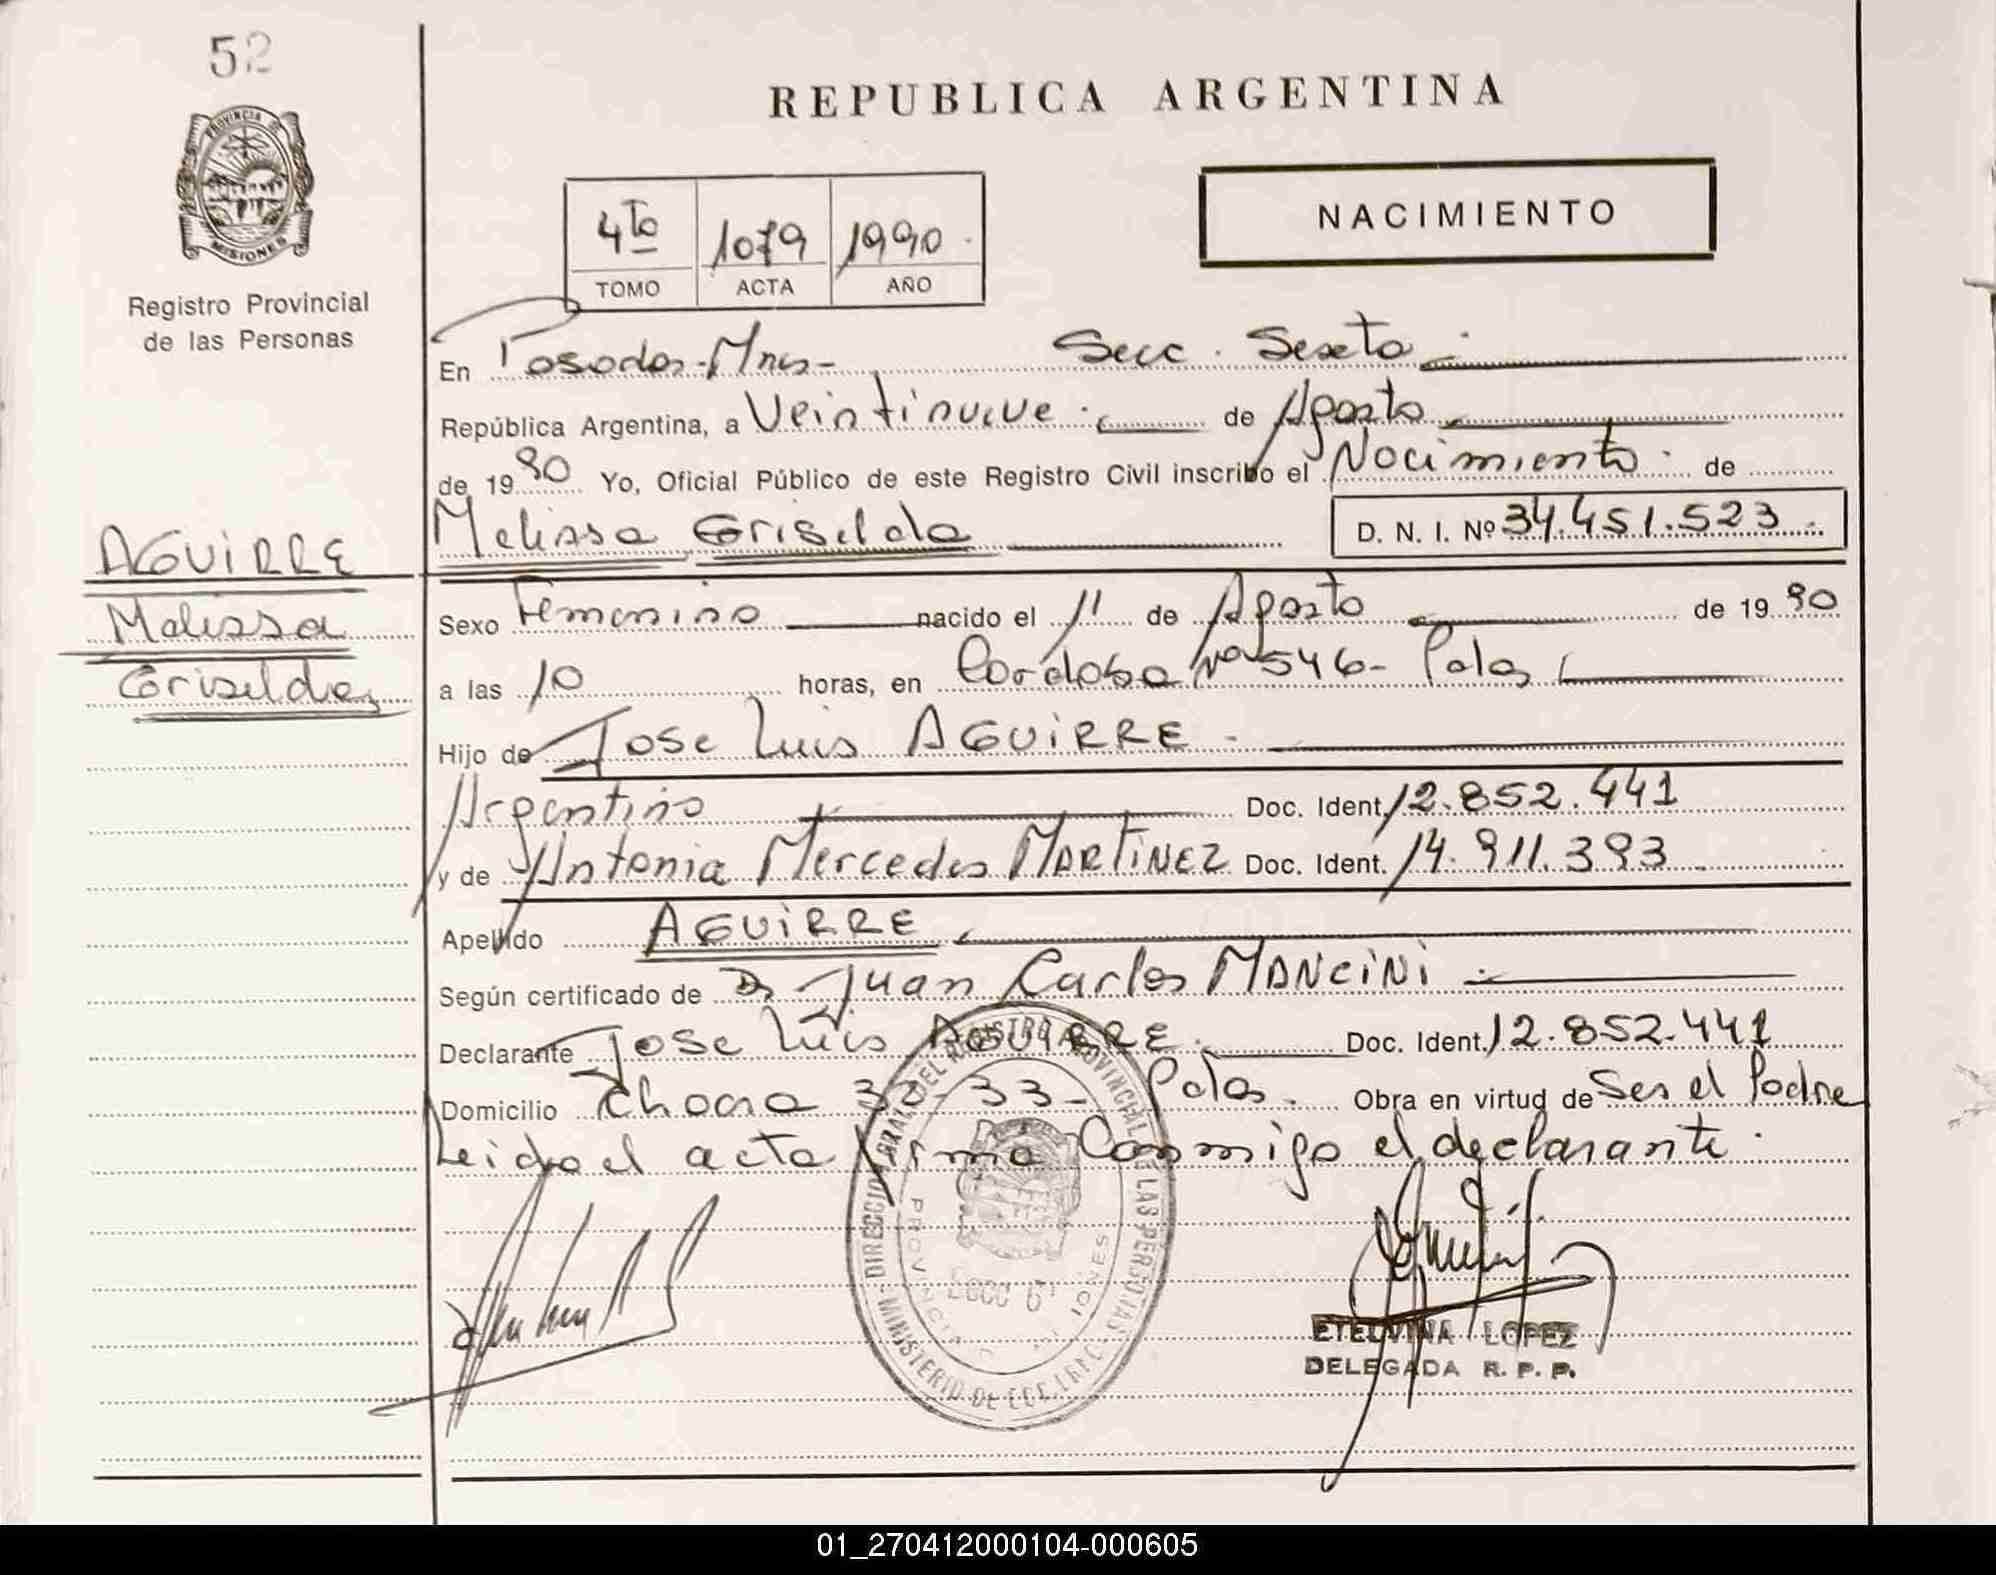 52
REPUBLICA ARGENTINA
PROVINCIA DE
MISIONES
Registro Provincial
de las Personas
4to 1079 1990
TOMO ACTA AÑO
NACIMIENTO
En Posadas-Mnes- Secc. Sexta
República Argentina, a Veintinueve de Agosto
de 1990 Yo, Oficial Público de este Registro Civil inscribo el Nacimiento de
Melissa Griselda D. N. I. Nº 34.451.523
AGUIRRE
Melissa
Griselda
Sexo Femenino nacido el 11 de Agosto de 1990
a las 10 horas, en Cordoba Nº 546- Pdas
Hijo de Jose Luis AGUIRRE
Argentino Doc. Ident. 12.852.441
y de Antonia Mercedes MARTINEZ Doc. Ident. 14.911.393
Apellido AGUIRRE
Según certificado de Dr Juan Carlos MANCINI
Declarante Jose Luis AGUIRRE Doc. Ident. 12.852.441
Domicilio 32-33- Pdas. Obra en virtud de Ser el Padre
Leida el acta firma Conmigo el declarante.
DIRECCION GRAL. DEL REGISTRO PROVINCIAL DE LAS PERSONAS
PROVINCIA DE MISIONES
ETELVINA LOPEZ
DELEGADA R. P. P.
01_270412000104-000605